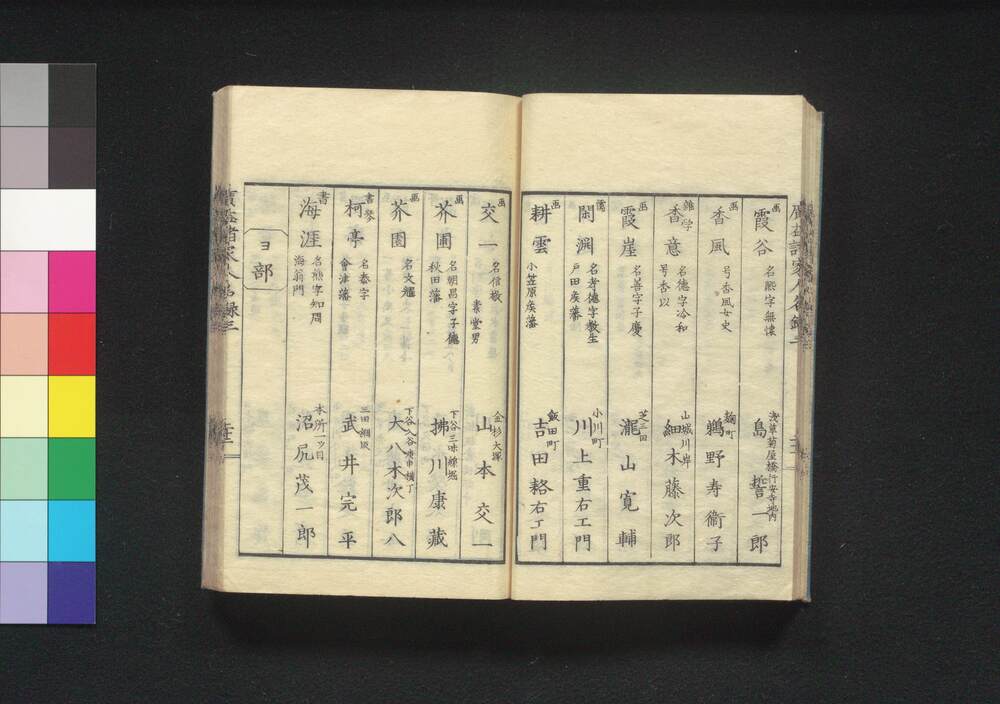 画
霞谷
名熙字無懐
浅草菊屋橋行安寺地内
島誓一郎
画
香風
号香風女史
麹町
鵜野寿衛子
雑学
香意
名徳字冷和
号香以
山城川岸
細木藤次郎
画
霞崖
名善字子慶
芝三田
瀧山寛輔
儒
閑淵
名孝徳字教生
戸田矦藩
小川町
川上重右工門
画
耕雲
小笠原矦藩
飯田町
吉田耞右工門
画
交一
名信敬
素堂男
金杉大塚
山本交一
画
芥圃
名朝昌字子徳
秋田藩
下谷三味線堀
拂川康蔵
画
芥園
名文耀
下谷入谷庚申横丁
大八木次郎八
書琴
柯亭
名泰字
會津藩
三田綱坂
武井完平
書
海涯
名熊字知周
海翁門
本所一ツ目
沼尻茂一郎
ヨ部